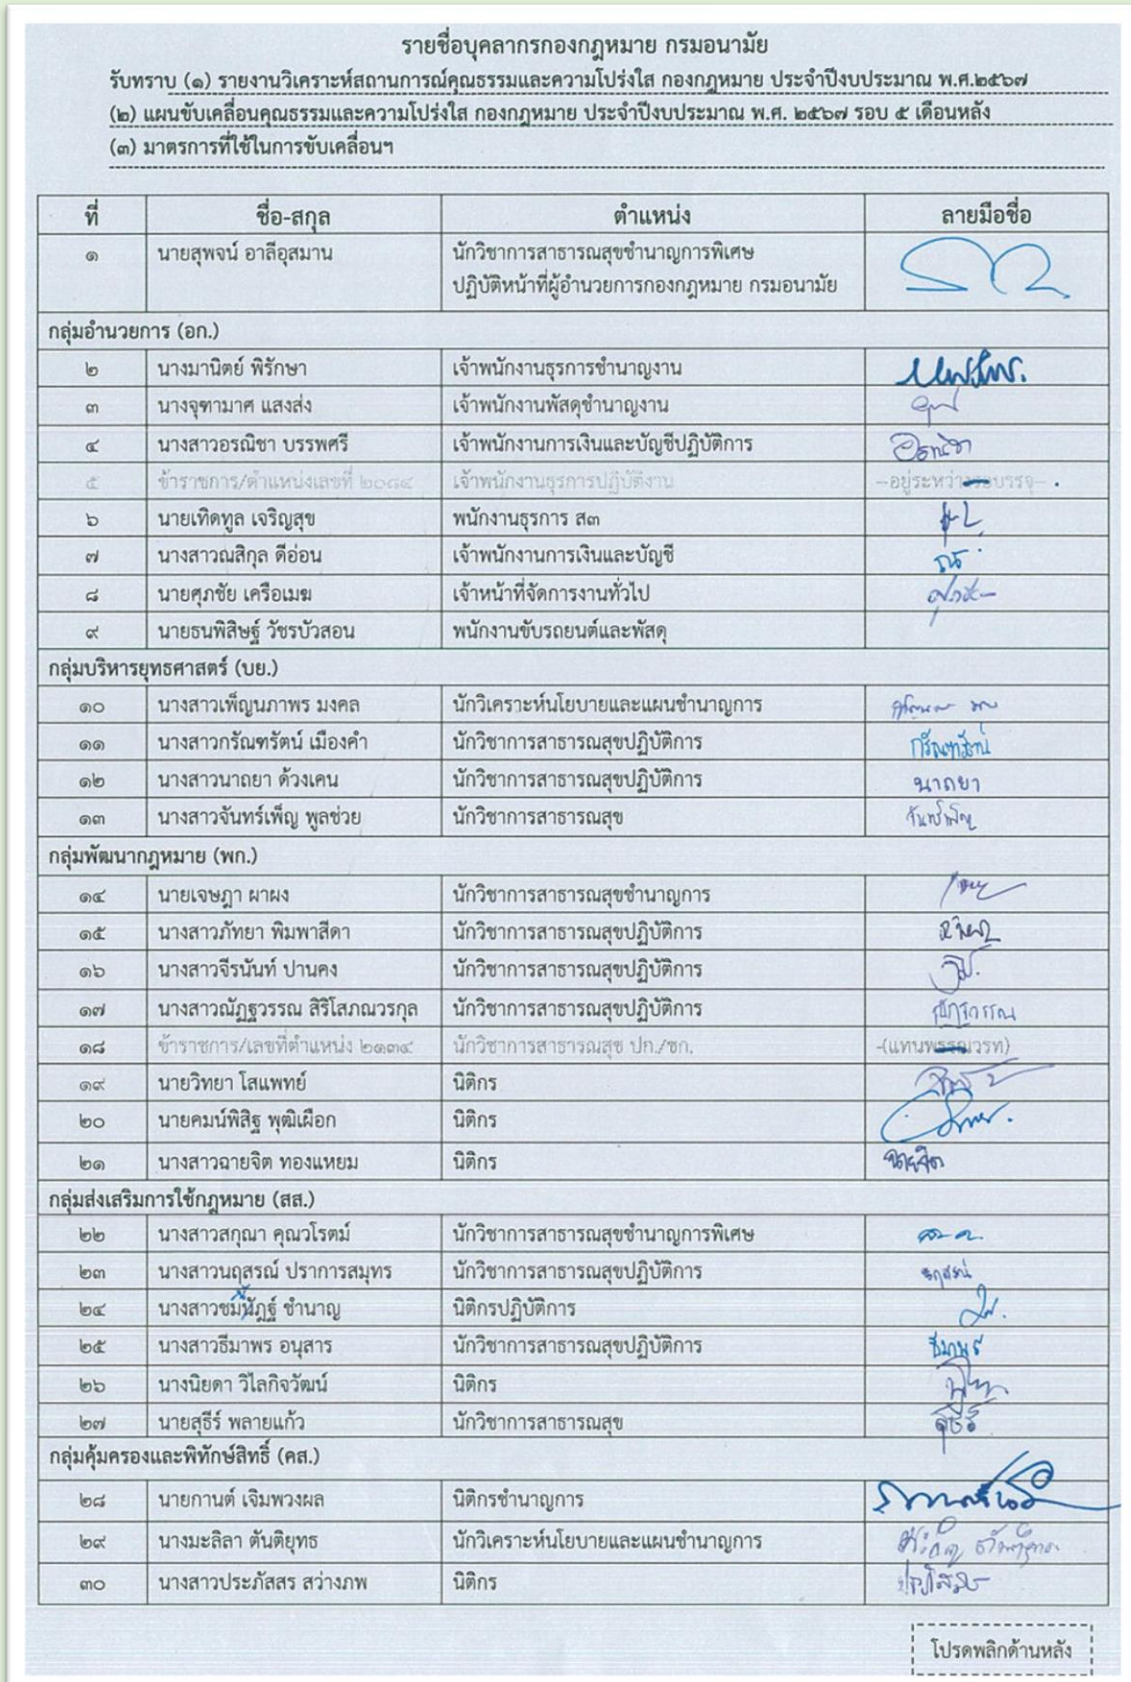 รายชื่อบุคลากรกองกฎหมาย กรมอนามัย
รับทราบ (๑) รายงานวิเคราะห์สถานการณ์คุณธรรมและความโปร่งใส กองกฎหมาย ประจำปีงบประมาณ พ.ศ.๒๕๖๗
(๒) แผนขับเคลื่อนคุณธรรมและความโปร่งใส กองกฎหมาย ประจำปีงบประมาณ พ.ศ. ๒๕๖๗ รอบ ๕ เดือนหลัง
(๓) มาตรการที่ใช้ในการขับเคลื่อนฯ
ที่ ชื่อ-สกุล ตำแหน่ง ลายมือชื่อ
๑ นายสุพจน์ อาลีอุสมาน นักวิชาการสาธารณสุขชำนาญการพิเศษ
ปฏิบัติหน้าที่ผู้อำนวยการกองกฎหมาย กรมอนามัย
กลุ่มอำนวยการ (อก.)
๒ นางมานิตย์ พิรักษา เจ้าพนักงานธุรการชำนาญงาน
๓ นางจุฑามาศ แสงส่ง เจ้าพนักงานพัสดุชำนาญงาน
๔ นางสาวอรณิชา บรรพศรี เจ้าพนักงานการเงินและบัญชีปฏิบัติการ อรณิชา
๕ ข้าราชการ/ตำแหน่งเลขที่ ๒๐๘๔ เจ้าพนักงานธุรการปฏิบัติงาน –อยู่ระหว่างรอบรรจุ–
๖ นายเทิดทูล เจริญสุข พนักงานธุรการ ส๓
๗ นางสาวณสิกุล ดีอ่อน เจ้าพนักงานการเงินและบัญชี
๘ นายศุภชัย เครือเมฆ เจ้าหน้าที่จัดการงานทั่วไป ศุภชัย
๙ นายธนพิสิษฐ์ วัชรบัวสอน พนักงานขับรถยนต์และพัสดุ
กลุ่มบริหารยุทธศาสตร์ (บย.)
๑๐ นางสาวเพ็ญนภาพร มงคล นักวิเคราะห์นโยบายและแผนชำนาญการ
๑๑ นางสาวกรัณฑรัตน์ เมืองคำ นักวิชาการสาธารณสุขปฏิบัติการ กรัณฑรัตน์
๑๒ นางสาวนาถยา ด้วงเคน นักวิชาการสาธารณสุขปฏิบัติการ นาถยา
๑๓ นางสาวจันทร์เพ็ญ พูลช่วย นักวิชาการสาธารณสุข จันทร์เพ็ญ
กลุ่มพัฒนากฎหมาย (พก.)
๑๔ นายเจษฎา ผาผง นักวิชาการสาธารณสุขชำนาญการ
๑๕ นางสาวภัทยา พิมพาสีดา นักวิชาการสาธารณสุขปฏิบัติการ
๑๖ นางสาวจีรนันท์ ปานคง นักวิชาการสาธารณสุขปฏิบัติการ
๑๗ นางสาวณัฏฐวรรณ สิริโสภณวรกุล นักวิชาการสาธารณสุขปฏิบัติการ ณัฏฐวรรณ
๑๘ ข้าราชการ/เลขที่ตำแหน่ง ๒๑๓๔ นักวิชาการสาธารณสุข ปก./ชก. -(แทนพรรณวรท)
๑๙ นายวิทยา โสแพทย์ นิติกร
๒๐ นายคมน์พิสิฐ พุฒิเผือก นิติกร
๒๑ นางสาวฉายจิต ทองแหยม นิติกร ฉายจิต
กลุ่มส่งเสริมการใช้กฎหมาย (สส.)
๒๒ นางสาวสกุณา คุณวโรตม์ นักวิชาการสาธารณสุขชำนาญการพิเศษ
๒๓ นางสาวนฤสรณ์ ปราการสมุทร นักวิชาการสาธารณสุขปฏิบัติการ นฤสรณ์
๒๔ ชำนาญ นิติกรปฏิบัติการ
๒๕ นางสาวธีมาพร อนุสาร นักวิชาการสาธารณสุขปฏิบัติการ ธีมาพร
๒๖ นางนิยดา วิไลกิจวัฒน์ นิติกร
๒๗ นายสุธีร์ พลายแก้ว นักวิชาการสาธารณสุข สุธีร์
กลุ่มคุ้มครองและพิทักษ์สิทธิ์ (คส.)
๒๘ นายกานต์ เจิมพวงผล นิติกรชำนาญการ
๒๙ นางมะลิลา ตันติยุทธ นักวิเคราะห์นโยบายและแผนชำนาญการ
๓๐ นางสาวประภัสสร สว่างภพ นิติกร
โปรดพลิกด้านหลัง